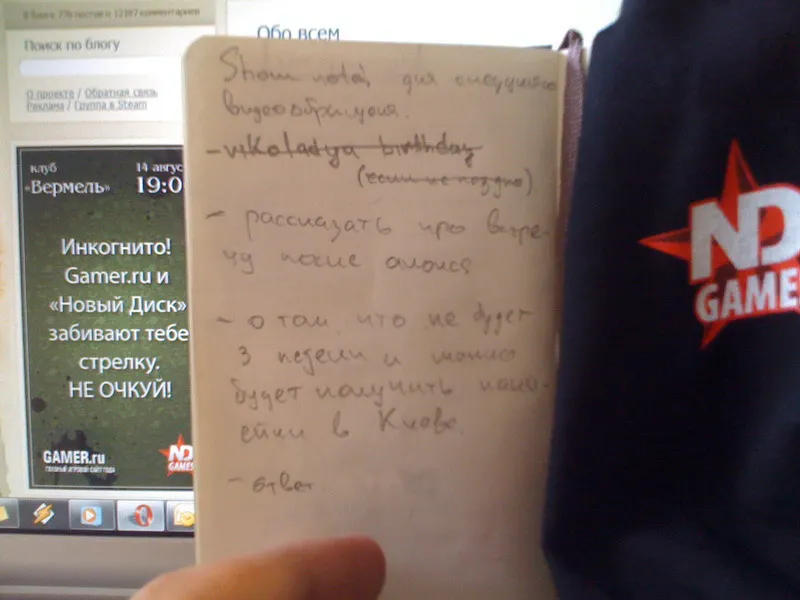 В блоге 776 постов и 12187 комментариев
Поиск по блогу
О проекте / Обратная связь
Реклама / Группа в Steam
Обо всем
клуб
«Вермель»
14 авгус
19:0
Инкогнито!
Gamer.ru и
«Новый Диск»
забивают тебе
стрелку.
НЕ ОЧКУЙ!
GAMER.ru
ГЛАВНЫЙ ИГРОВОЙ САЙТ ГОДА
ND
GAMES
Show notes, для следующего
видеообращения.
- viKoladya birthday
(если не поздно)
- рассказать про встре-
чу после анонса
- о том, что не будет
3 недели и можно
будет получить
в Киеве.
- ответ.
ND
GAME